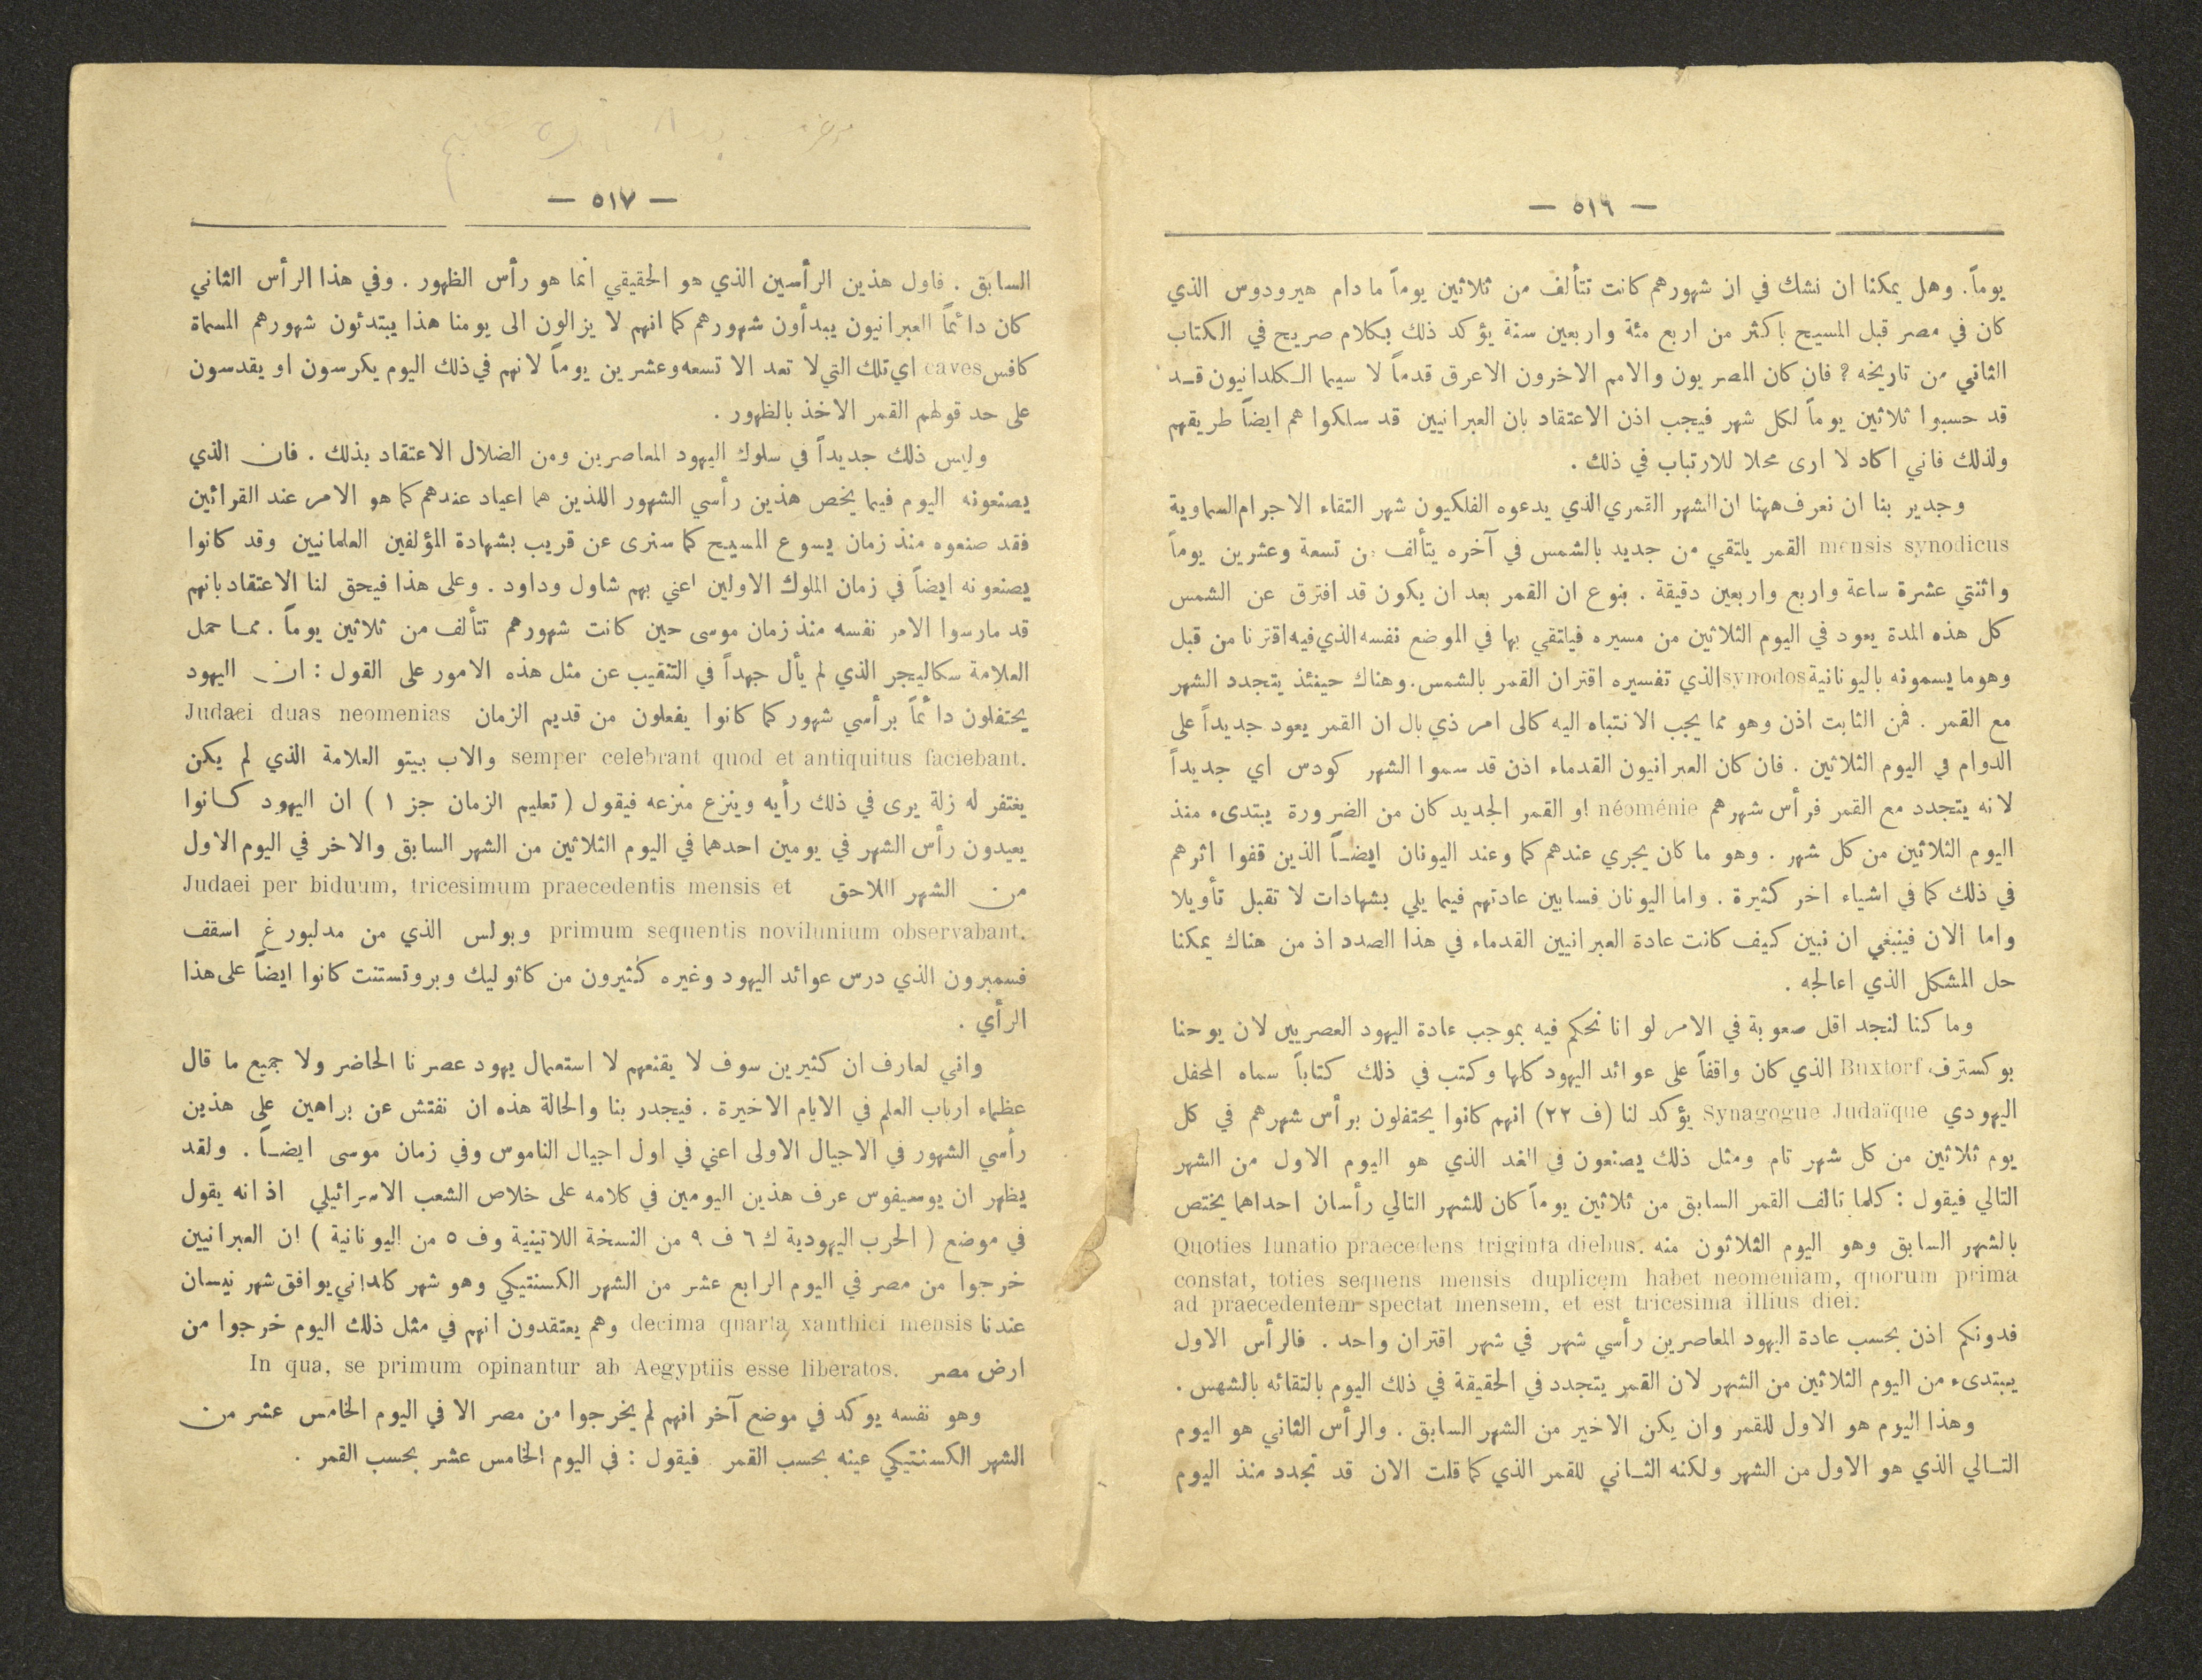 — ٥١٦ —
يوماً. وهل يمكننا ان نشك في ان شهورهم كانت تتألف من ثلاثين يوماً ما دام هيرودوس الذي
كان في مصر قبل المسيح باكثر من اربع مئة واربعين سنة يؤكد ذلك بكلام صريح في الكتاب
الثاني من تاريخه ? فان كان المصريون والامم الاخرون الاعرق قدماً لا سيما الكلدانيون قد
قد حسبوا ثلاثين يوماً لكل شهر فيجب اذن الاعتقاد بان العبرانيين قد سلكوا هم ايضاً طريقهم
ولذلك فاني اكاد لا ارى محلا للارتياب في ذلك .
وجدير بنا ان نعرف ههنا ان الشهر القمري الذي يدعوه الفلكيون شهر التقاء الاجرام السماوية
mensis synodicus القمر يلتقي من جديد بالشمس في آخره يتألف من تسعة وعشرين يوماً
واثنتي عشرة ساعة واربع واربعين دقيقة . بنوع ان القمر بعد ان يكون قد افترق عن الشمس
كل هذه المدة يعود في اليوم الثلاثين من مسيره فيلتقي بها في الموضع نفسه الذي فيه اقترنا من قبل
وهو ما يسمونه باليونانية synodos الذي تفسيره اقتران القمر بالشمس. وهناك حينئذ يتجدد الشهر
مع القمر . فمن الثابت اذن وهو مما يجب الانتباه اليه كالى امر ذي بال ان القمر يعود جديداً على
الدوام في اليوم الثلاثين . فان كان العبرانيون القدماء اذن قد سموا الشهر كودس اي جديداً
لانه يتجدد مع القمر فرأس شهرهم néoménie او القمر الجديد كان من الضرورة يبتدىء منذ
اليوم الثلاثين من كل شهر . وهو ما كان يجري عندهم كما وعند اليونان ايضاً الذين قفوا اثرهم
في ذلك كما في اشياء اخر كثيرة . واما اليونان فسابين عادتهم فيما يلي بشهادات لا تقبل تأويلا
واما الان فينبغي ان نبين كيف كانت عادة العبرانيين القدماء في هذا الصدد اذ من هناك يمكننا
حل المشكل الذي اعالجه .
وما كنا لنجد اقل صعوبة في الامر لو انا نحكم فيه بموجب عادة اليهود العصريين لان يوحنا
بوكسترف Buxtorf الذي كان واقفاً على عوائد اليهود كلها وكتب في ذلك كتاباً سماه المحفل
اليهودي Synagogue Judaïque يؤكد لنا (ف ٢٢) انهم كانوا يحتفلون برأس شهرهم في كل
يوم ثلاثين من كل شهر تام ومثل ذلك يصنعون في الغد الذي هو اليوم الاول من الشهر
التالي فيقول : كلما تالف القمر السابق من ثلاثين يوماً كان للشهر التالي رأسان احداهما يختص
بالشهر السابق وهو اليوم الثلاثون منه .Quoties lunatio praecedens triginta diebus
constat, toties sequens mensis duplicem habet neomeniam, quorum prima
ad praecedentem spectat mensem, et est tricesima illius diei.
فدونكم اذن بحسب عادة اليهود المعاصرين رأسي شهر في شهر اقتران واحد . فالرأس الاول
يبتدىء من اليوم الثلاثين من الشهر لان القمر يتجدد في الحقيقة في ذلك اليوم بالتقائه بالشمس .
وهذا اليوم هو الاول للقمر وان يكن الاخير من الشهر السابق . والرأس الثاني هو اليوم
التالي الذي هو الاول من الشهر ولكنه الثاني للقمر الذي كما قلت الان قد تجدد منذ اليوم
— ٥١٧ —
السابق . فاول هذين الرأسين الذي هو الحقيقي انما هو رأس الظهور . وفي هذا الرأس الثاني
كان دائماً العبرانيون يبدأون شهورهم كما انهم لا يزالون الى يومنا هذا يبتدئون شهورهم المسماة
كافس caves اي تلك التي لا تعد الا تسعه وعشرين يوماً لانهم في ذلك اليوم يكرسون او يقدسون
على حد قولهم القمر الاخذ بالظهور .
وليس ذلك جديداً في سلوك اليهود المعاصرين ومن الضلال الاعتقاد بذلك . فان الذي
يصنعونه اليوم فيما يخص هذين رأسي الشهور اللذين هما اعياد عندهم كما هو الامر عند القرائين
فقد صنعوه منذ زمان يسوع المسيح كما سنرى عن قريب بشهادة المؤلفين العلمانيين وقد كانوا
يصنعونه ايضاً في زمان الملوك الاولين اعني بهم شاول وداود . وعلى هذا فيحق لنا الاعتقاد بانهم
قد مارسوا الامر نفسه منذ زمان موسى حين كانت شهورهم تتألف من ثلاثين يوماً . مما حمل
العلامة سكاليجر الذي لم يأل جهداً في التنقيب عن مثل هذه الامور على القول : ان اليهود
يحتفلون دائماً برأسي شهور كما كانوا يفعلون من قديم الزمان Judaei duas neomenias
semper celebrant quod et antiquitus faciebant. والاب بيتو العلامة الذي لم يكن
يغتفر له زلة يرى في ذلك رأيه وينزع منزعه فيقول ( تعليم الزمان جز ١ ) ان اليهود كانوا
يعيدون رأس الشهر في يومين احدهما في اليوم الثلاثين من الشهر السابق والاخر في اليوم الاول
من الشهر اللاحق Judaei per biduum, tricesimum praecedentis mensis et
primum sequentis novilunium observabant. وبولس الذي من مدلبورغ اسقف
فسمبرون الذي درس عوائد اليهود وغيره كثيرون من كاثوليك وبروتستنت كانوا ايضاً على هذا
الرأي .
واني لعارف ان كثيرين سوف لا يقنعهم لا استعمال يهود عصرنا الحاضر ولا جميع ما قال
عظماء ارباب العلم في الايام الاخيرة . فيجدر بنا والحالة هذه ان نفتش عن براهين على هذين
رأسي الشهور في الاجيال الاولى اعني في اول اجيال الناموس وفي زمان موسى ايضاً . ولقد
يظهر ان يوسيفوس عرف هذين اليومين في كلامه على خلاص الشعب الاسرائيلي اذ انه يقول
في موضع ( الحرب اليهودية ك ٦ ف ٩ من النسخة اللاتينية وف ٥ من اليونانية ) ان العبرانيين
خرجوا من مصر في اليوم الرابع عشر من الشهر الكسنتيكي وهو شهر كلداني يوافق شهر نيسان
عندنا decima quarta xanthici mensis وهم يعتقدون انهم في مثل ذلك اليوم خرجوا من
ارض مصر .In qua, se primum opinantur ab Aegyptiis esse liberatos
وهو نفسه يوكد في موضع آخر انهم لم يخرجوا من مصر الا في اليوم الخامس عشر من
الشهر الكسنتيكي عينه بحسب القمر فيقول : في اليوم الخامس عشر بحسب القمر .